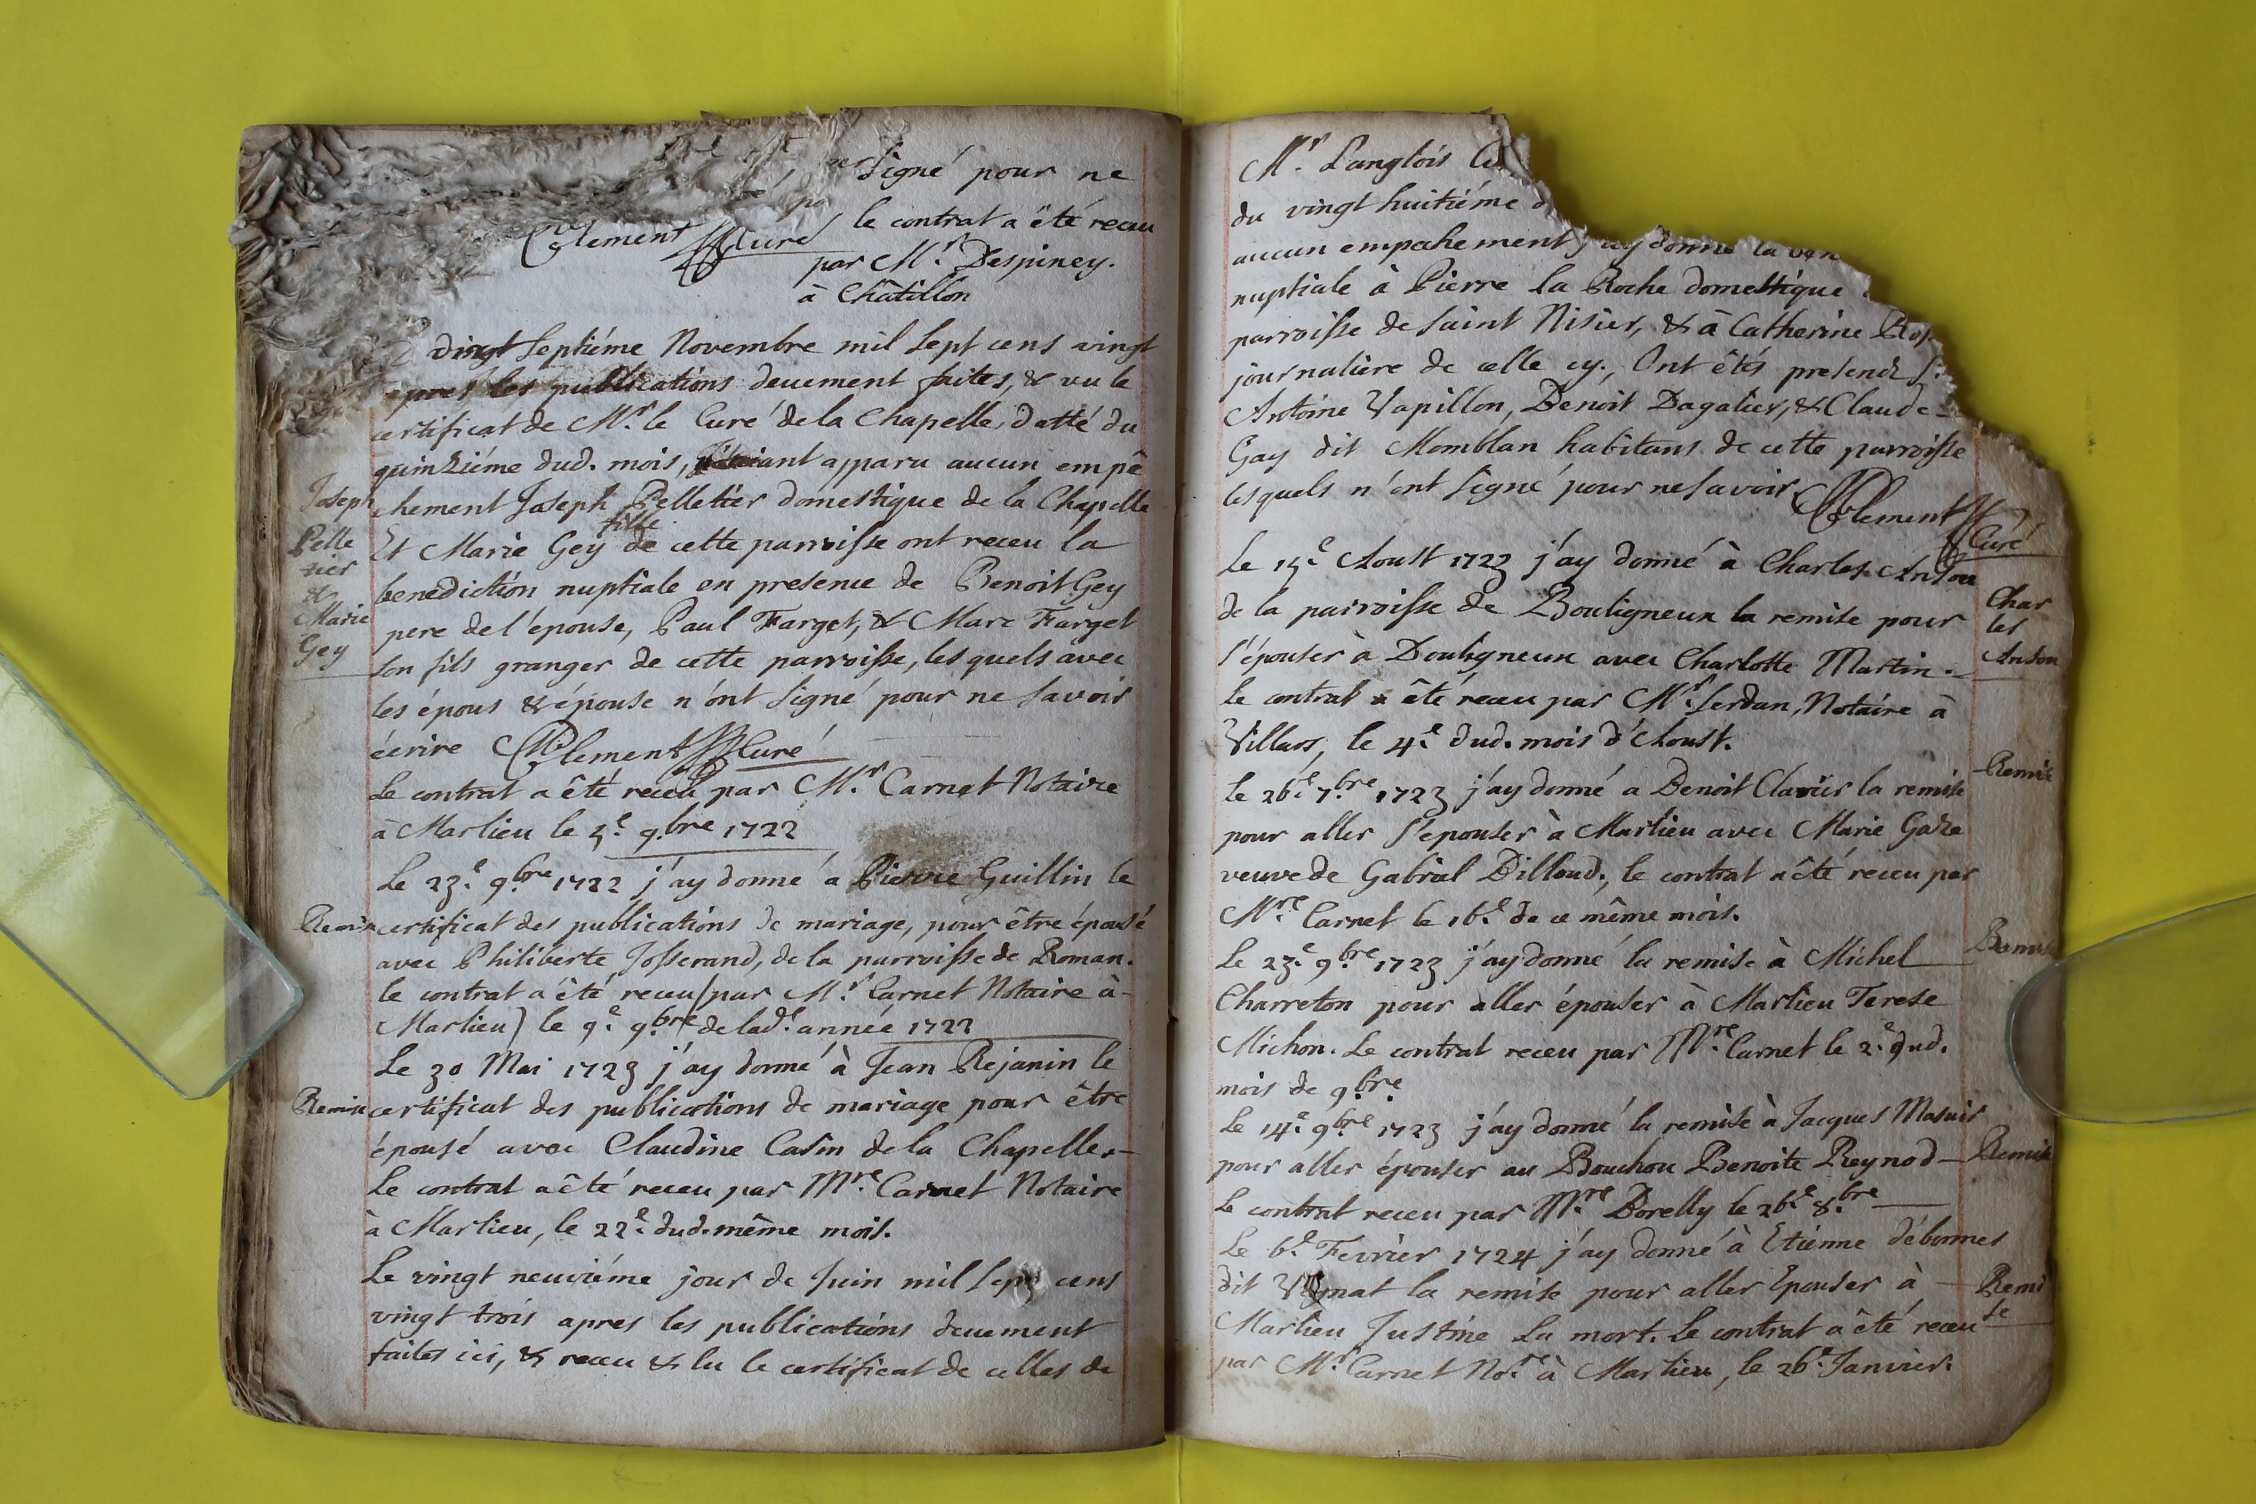 signé pour ne
le contrat a êté receu
Clement Curé
par Mr. Despiney.
à Châtillon
vingt septiéme Novembre mil sept cens vingt
apres les publications deuement faites, & vu le
certificat de Mr. le Curé de la Chapelle, datté du
quinziéme dud. mois, apparu aucun empê
chement Joseph Pelletier domestique de la Chapelle
fille
Et Marie Gey de cette parroisse ont receu la
benediction nuptiale en presence de Benoit Gey
pere de l'épouse, Paul Farget, & Marc Farget
son fils granger de cette parroisse, lesquels avec
les épous & épouse n'ont signé pour ne savoir
écrire Clement Curé
Joseph
Pelle
tier
&
Marie
Gey
Le contrat a êté receu par Mr. Carnet Notaire
à Marlieu le 9.bre 1722
Le 23.e 9.bre 1722 j'ay donné a Pierre Guillin le
Remise
certificat des publications de mariage, pour être épousé
avec Philiberte Josserand, de la parroisse de Roman.
le contrat a êté receu (par Mr. Carnet Notaire à
Marlieu) le 9.e 9.bre de lad. année 1722
Le 30 Mai 1723 j'ay donné à Jean Rejanin le
Remise
certificat des publications de mariage pour être
épousé avec Claudine Casin de la Chapelle.
Le contrat a êté receu par Mre. Carnet Notaire
à Marlieu, le 22.e dud. même mois.
Le vingt neuviéme jour de Juin mil sept cens
vingt trois apres les publications deuement
faites ici, & receu & lu le certificat de celles de
Mr. Langlois
du vingt huitiéme
aucun empechement j'ay donné la
nuptiale à Pierre la Roche domestique
parroisse de saint Nisier, & à Catherine
journaliere de celle cy., Ont êtés presendz
Antoine Vapillon, Benoit Dagalier, & Claude
Gay dit Momblan habitans de cette parroisse
lesquels n'ont signé pour ne savoir Clement
Curé
Le 15.e Aoust 1723 j'ay donné à Charles Anson
de la parroisse de Bouligneux la remise pour
s'épouser à Bouligneux avec Charlotte Martin.
Le contrat a êté receu par Mr. Serdan, Notaire à
Villars, le 4.e dud. mois d'Aoust.
Char
les
Anson
Le 26.e 7.bre 1723 j'ay donné a Benoit Clavier la remise
Remise
pour aller s'epouser à Marlieu avec Marie
veuve de Gabriel Billoud., le contrat a êté receu par
Mre. Carnet le 16.e de ce même mois.
Le 23.e 9.bre 1723 j'ay donné la remise à Michel
Remise
Charreton pour aller épouser à Marlieu Terese
Michon. Le contrat receu par Mre. Carnet le 2.e dud.
mois de 9.bre
Le 14.e 9.bre 1723 j'ay donné la remise à Jacques Masuir
pour aller épouser au Bouchou Benoite Reynod
Remise
Le contrat receu par Mre. Borelly le 26.e 8.bre
Le 6.e Fevrier 1724 j'ay donné à Etienne débonnes
dit la remise pour aller Epouser à
Remi
se
Marlieu Justine La mort. Le contrat a êté receu
par Mr. Carnet Nore. à Marlieu, le 26.e Janvier.